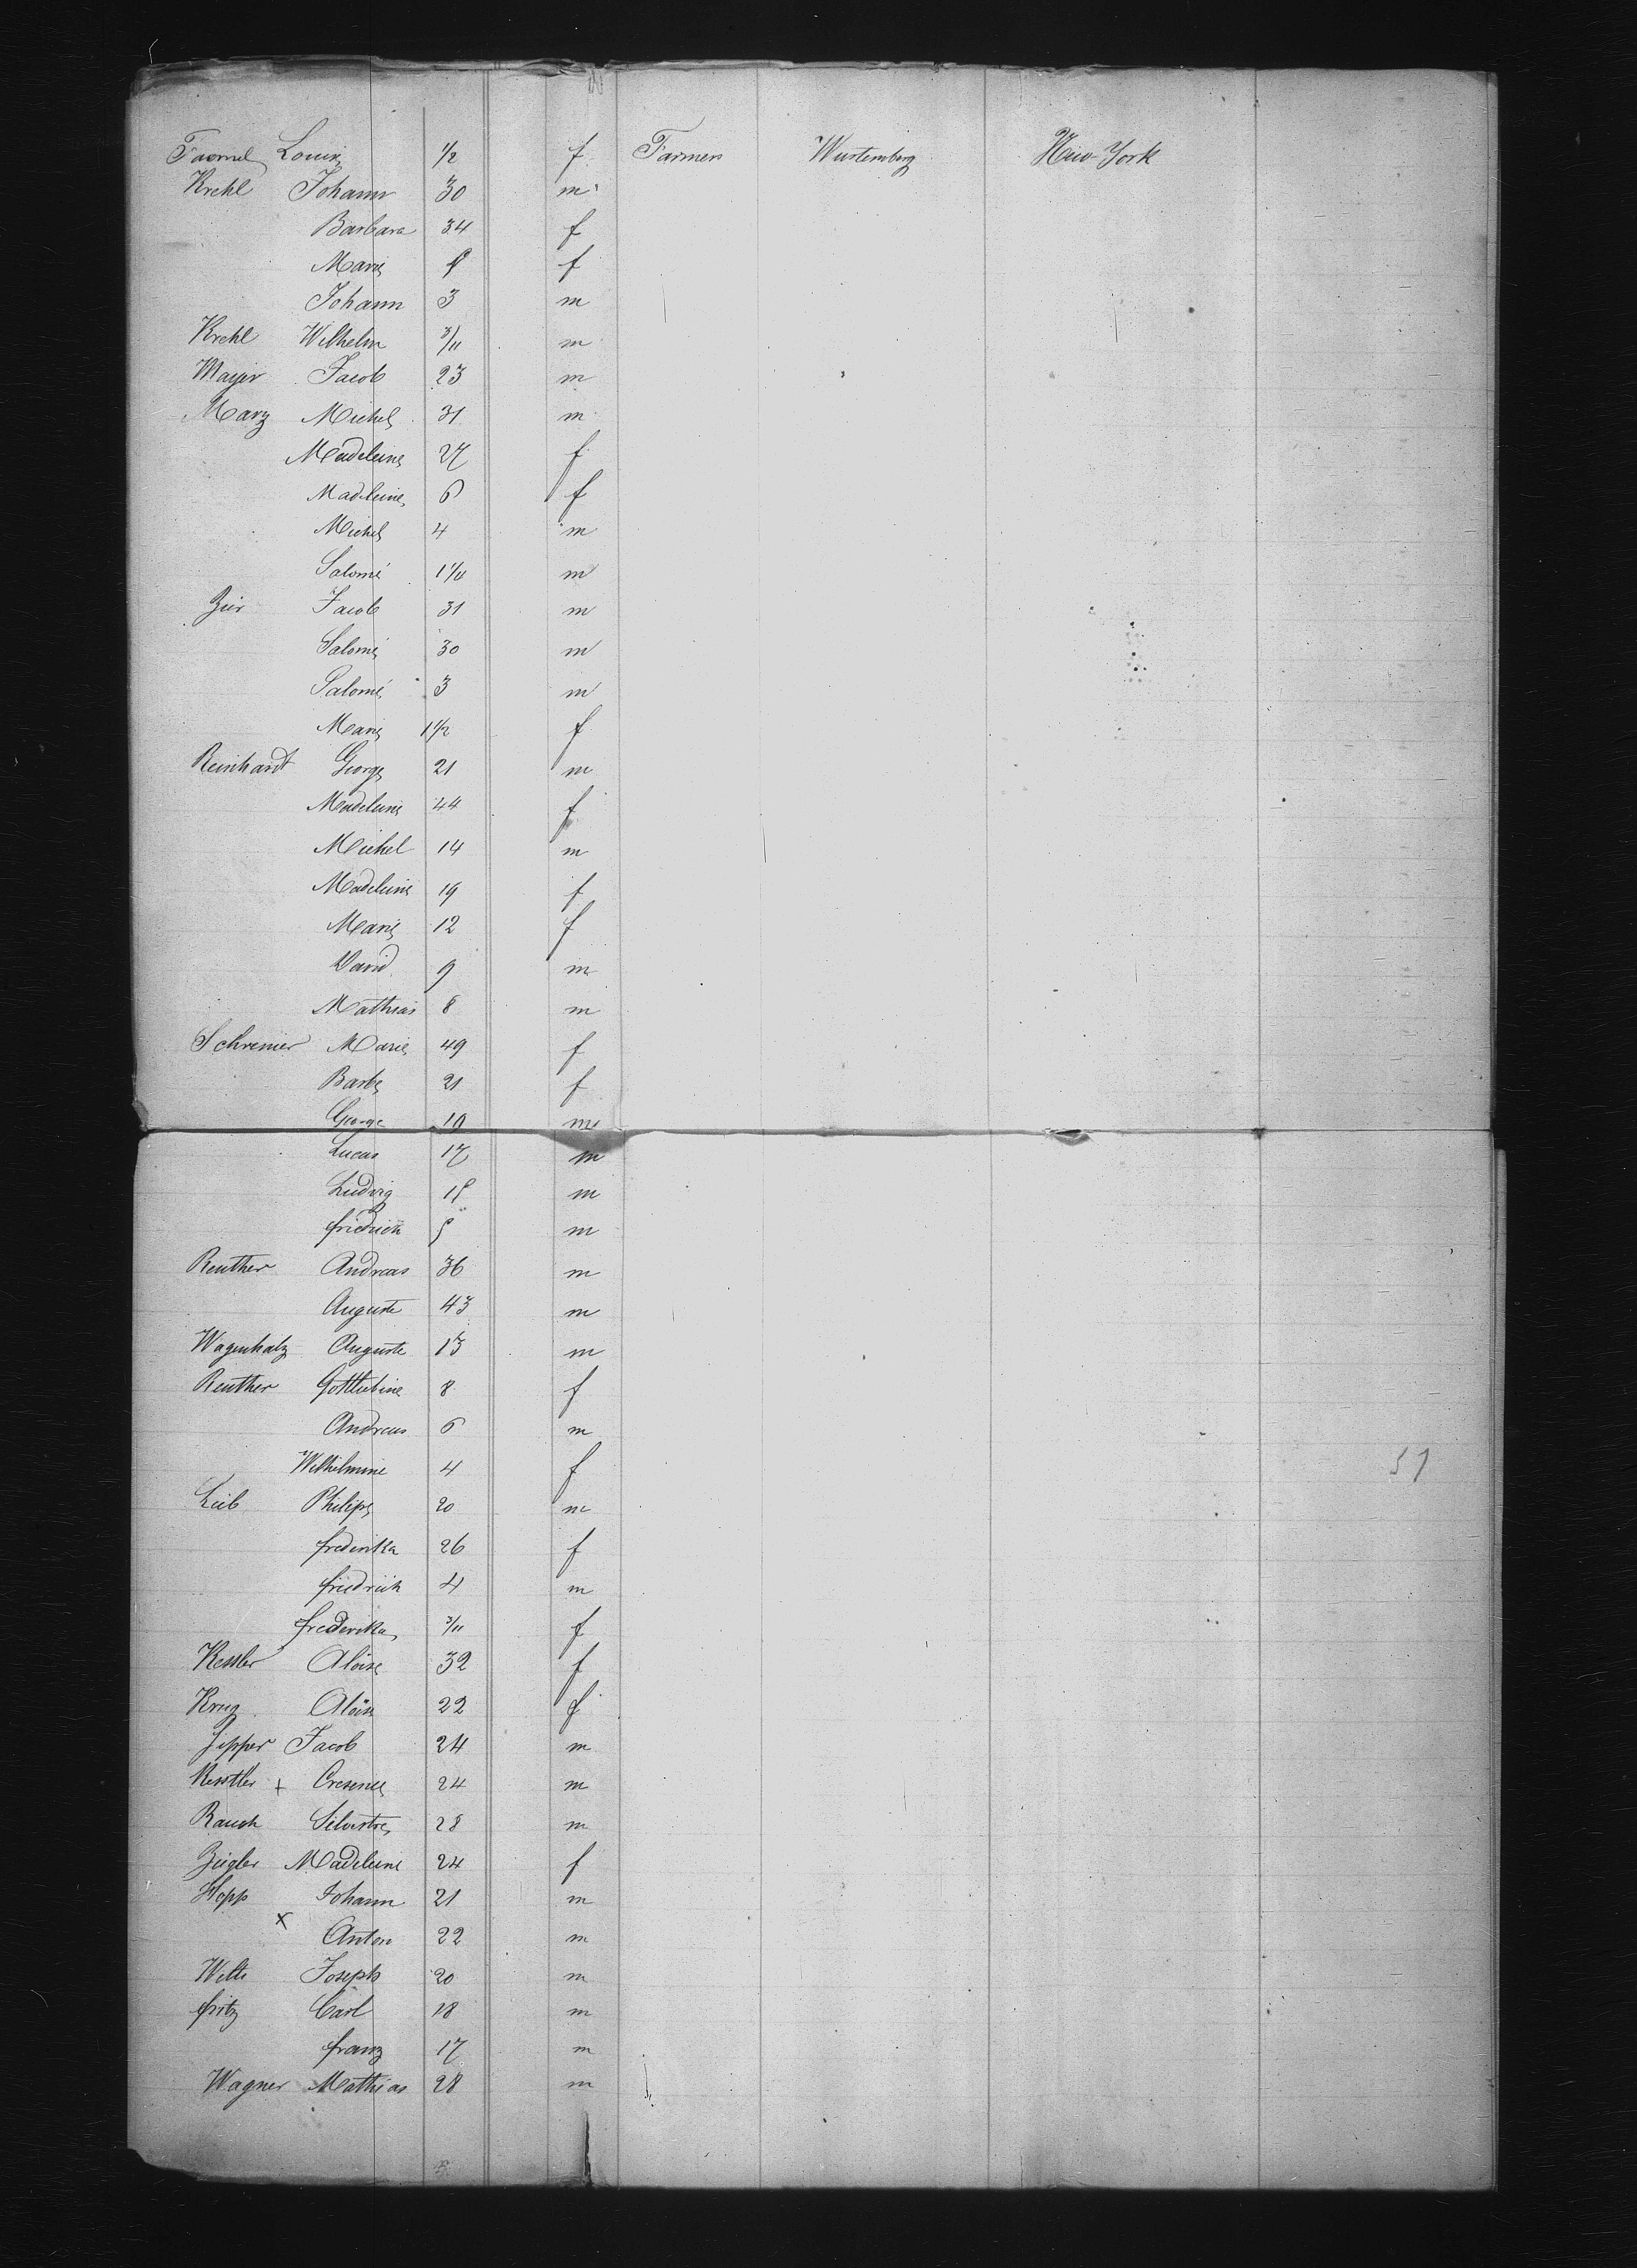 Louise 1/2 f Farmers Wurtemberg New-York
Krehl Johann 30 m
Barbara 34 f
Marie f
Johann 3 m
Krehl Wilhelm 3/11 m
Mayer Jacob 23 m
Marz Michel 31 m
Madeleine 27 f
Madleine 6 f
Michel 4 m
Salomé 1 1/11 m
Zier Jacob 31 m
Salomé 30 m
Salomé 3 m
Marie 1 1/2 f
Reinhardt George 21 m
Madeleine 44 f
Michel 14 m
Madeleine 19 f
Marie 12 f
David 9 m
Mathias 8 m
Schreiner Marie 49 f
Barbe 21 f
George 19 m
Lucas 17 m
Ludvig m
friedrich m
Reuther Andreas 36 m
Auguste 43 m
Wagenhalz Auguste 13 m
Reuther Gottliebine 8 f
Andreas 6 m
Wilhelmine 4 f
57
Lieb Philipe 20 m
frederika 26 f
friedrich 4 m
frederika 3/11 f
Kessler Aloise 32 f
Krug Aloise 22 f
Zipper Jacob 24 m
Kesstler + Cresence 24 m
Rauch Silvestre 28 m
Ziegler Madeleine 24 f
Hopp Johann 21 m
x Anton 22 m
Welte Joseph 20 m
fritz Carl 18 m
franz 17 m
Wagner Mathias 28 m